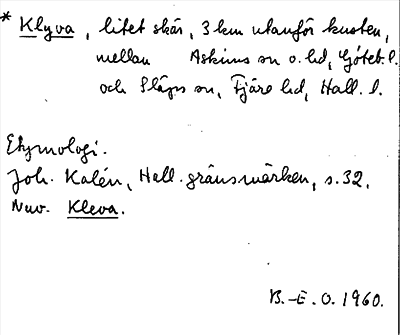 * Klyva, litet skär, 3 km utanför kusten,
mellan Askims sn o. hd, Göteb. l.
och Släps sn, Fjäre hd, Hall. l.
Etymologi.
Joh. Kalén, Hall. gränsmärken, s. 32.
Nuv. Kleva.
B.-E. O. 1960.